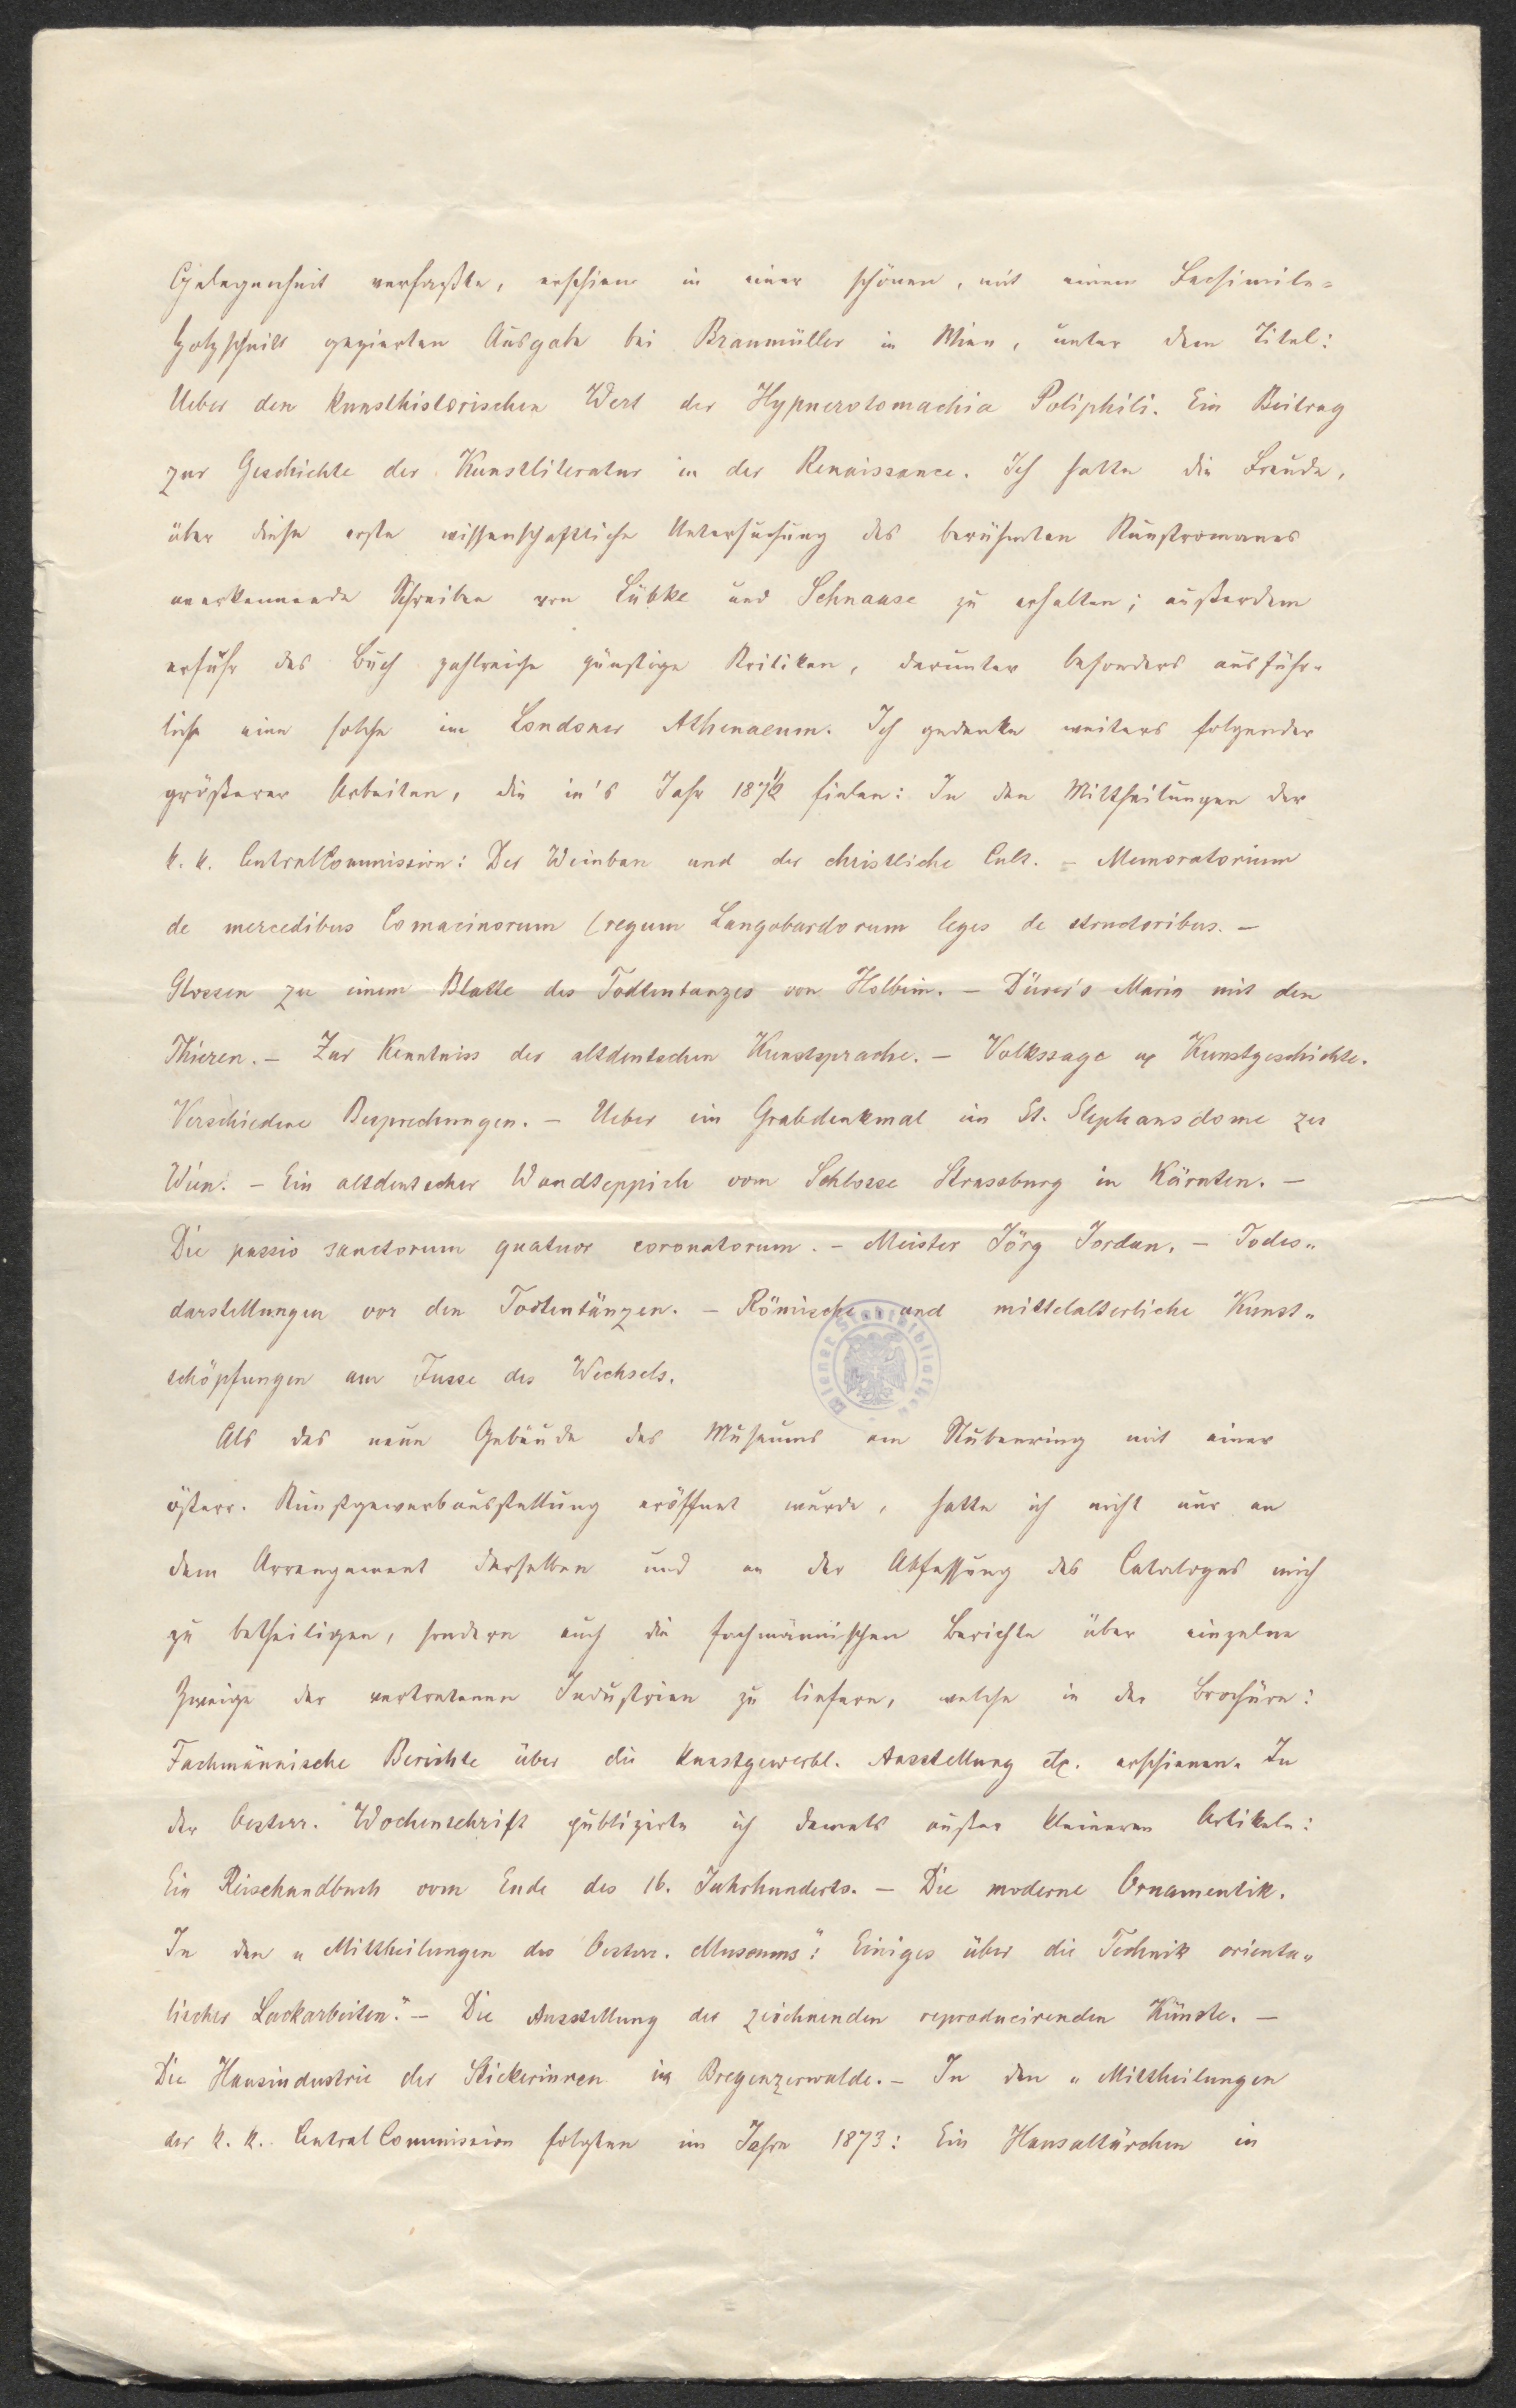 Gelegenheit verfaßte, erschien in einer schönen, mit einem Facsimile-
holzschnitt gezierten Ausgabe bei Braumüller in Wien, unter dem Titel:
Ueber den kunsthistorischen Wert der Hypnerotomachia Poliphili. Ein Beitrag
zur Geschichte der Kunstliteratur in der Renaissance. Ich hatte die Freude,
über diese erste wissenschaftliche Untersuchung des berühmten Kunstromanes
anerkennende Schreiben von Lübke und Schnaase zu erhalten; außerdem
erfuhr das Buch zahlreiche günstige Kritiken, darunter besonders ausführ-
liche eine solche im Londoner Athenaeum. Ich gedenke weiters folgender
größerer Arbeiten, die in's Jahr 1871 fielen: In den Mittheilungen der
k. k. CentralCommission: Der Weinbau und der christliche Cult. – Memoratorium
de mercedibus Comacinorum (regum Langobardorum leges de structoribus. –
Glossen zu einem Blatte des Todtentanzes von Holbein. – Dürer's Maria mit den
Thieren. – Zur Kenntniss der altdeutschen Kunstsprache. – Volkssage u. Kunstgeschichte.
Verschiedene Besprechungen. – Ueber ein Grabdenkmal im St. Stephansdome zu
Wien. – Ein altdeutscher Wandteppich vom Schlosse Strassburg in Kärnten. –
Die passio sanctorum quatuor coronatorum. – Meister Jörg Jordan. – Todes„
darstellungen vor den Todtentänzen. – Römische und mittelalterliche Kunst„
schöpfungen am Fusse des Wechsels.
Wiener Stadtbibliothek
Als das neue Gebäude des Museums am Stubenring mit einer
österr. Kunstgewerbausstellung eröffnet wurde, hatte ich nicht nur an
dem Arrangement derselben und an der Abfassung des Cataloges mich
zu betheiligen, sondern auch die fachmännischen Berichte über einzelne
Zweige der vertretenen Industrien zu liefern, welche in der Brochüre:
Fachmännische Berichte über die kunstgewerbl. Ausstellung etc. erschienen. In
der Oesterr. Wochenschrift publizirte ich damals außer kleineren Artikeln:
Ein Reisehandbuch vom Ende des 16. Jahrhunderts. – Die moderne Ornamentik.
In den „Mittheilungen des Oesterr. Museums": Einiges über die Technik orienta„
lischer Lackarbeiten." – Die Ausstellung der zeichnenden reproducirenden Künste. –
Die Hausindustrie der Stickerinnen im Bregenzerwalde. – In den „Mittheilungen
der k. k. CentralCommission folgten im Jahre 1873: Ein Hausaltärchen in